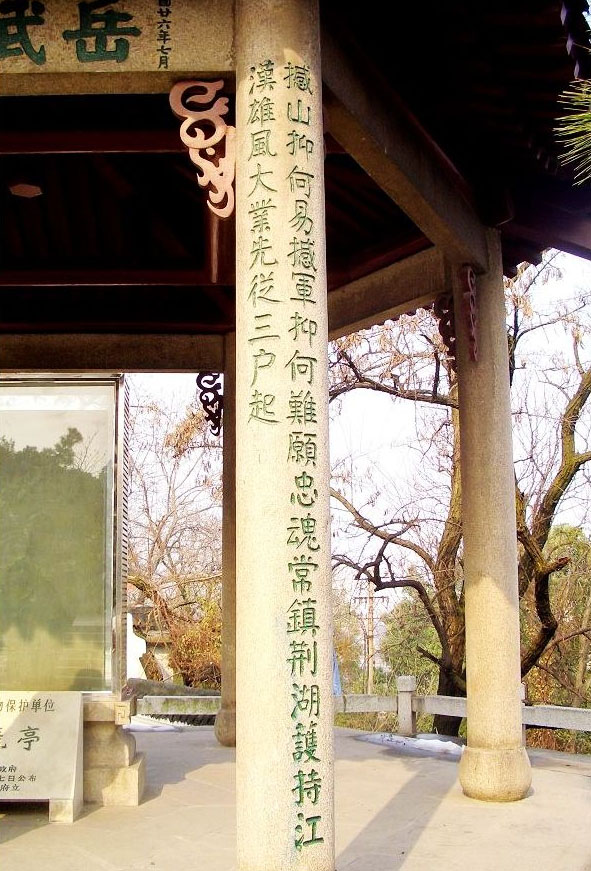 國廿六年七月
岳武
撼山抑何易撼軍抑何難願忠魂常鎮荆湖護持江
漢雄風大業先從三户起
保护单位
亭
政府
七日公布
府立